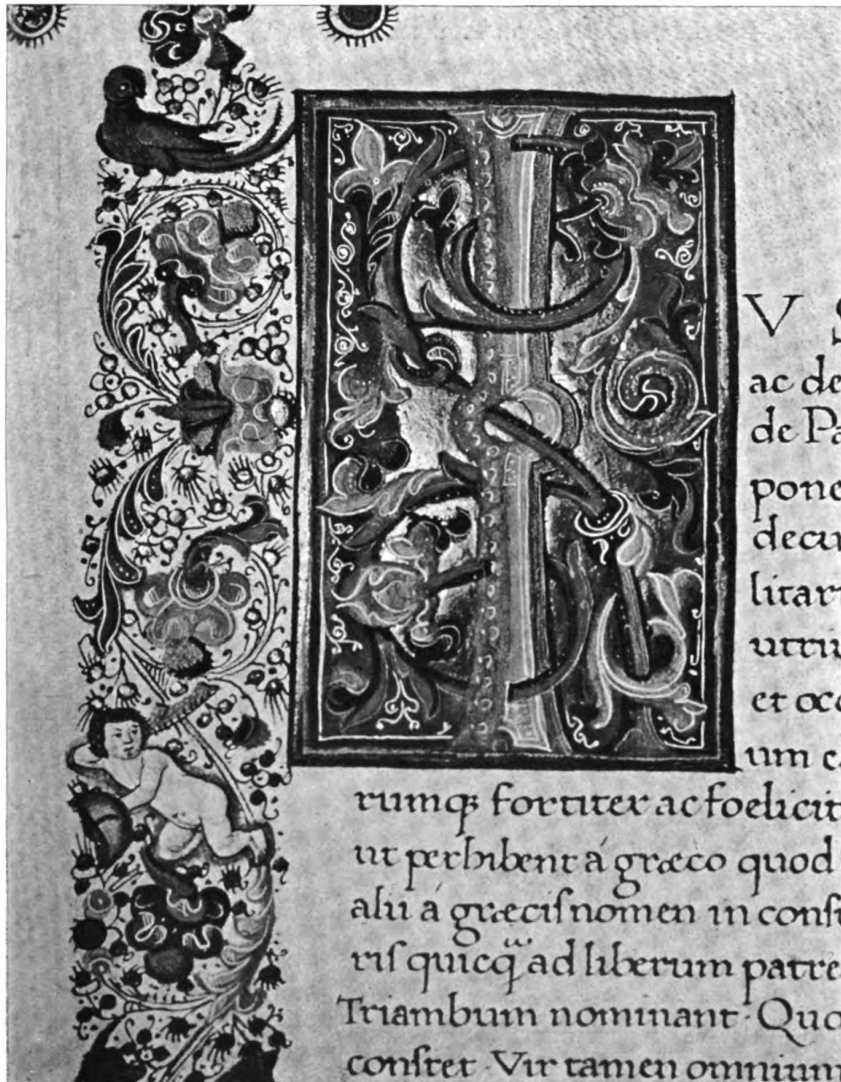 I
V S
ac de
de Pa
pone
decu
litar
utriu
et occ
um e
rumq; fortiter ac foelicit
ut perhibent á græco quod
alii á græcis nomen in const
ris quicq̃ ad liberum patre
Triambum nominant. Quo
constet. Vir tamen omnium